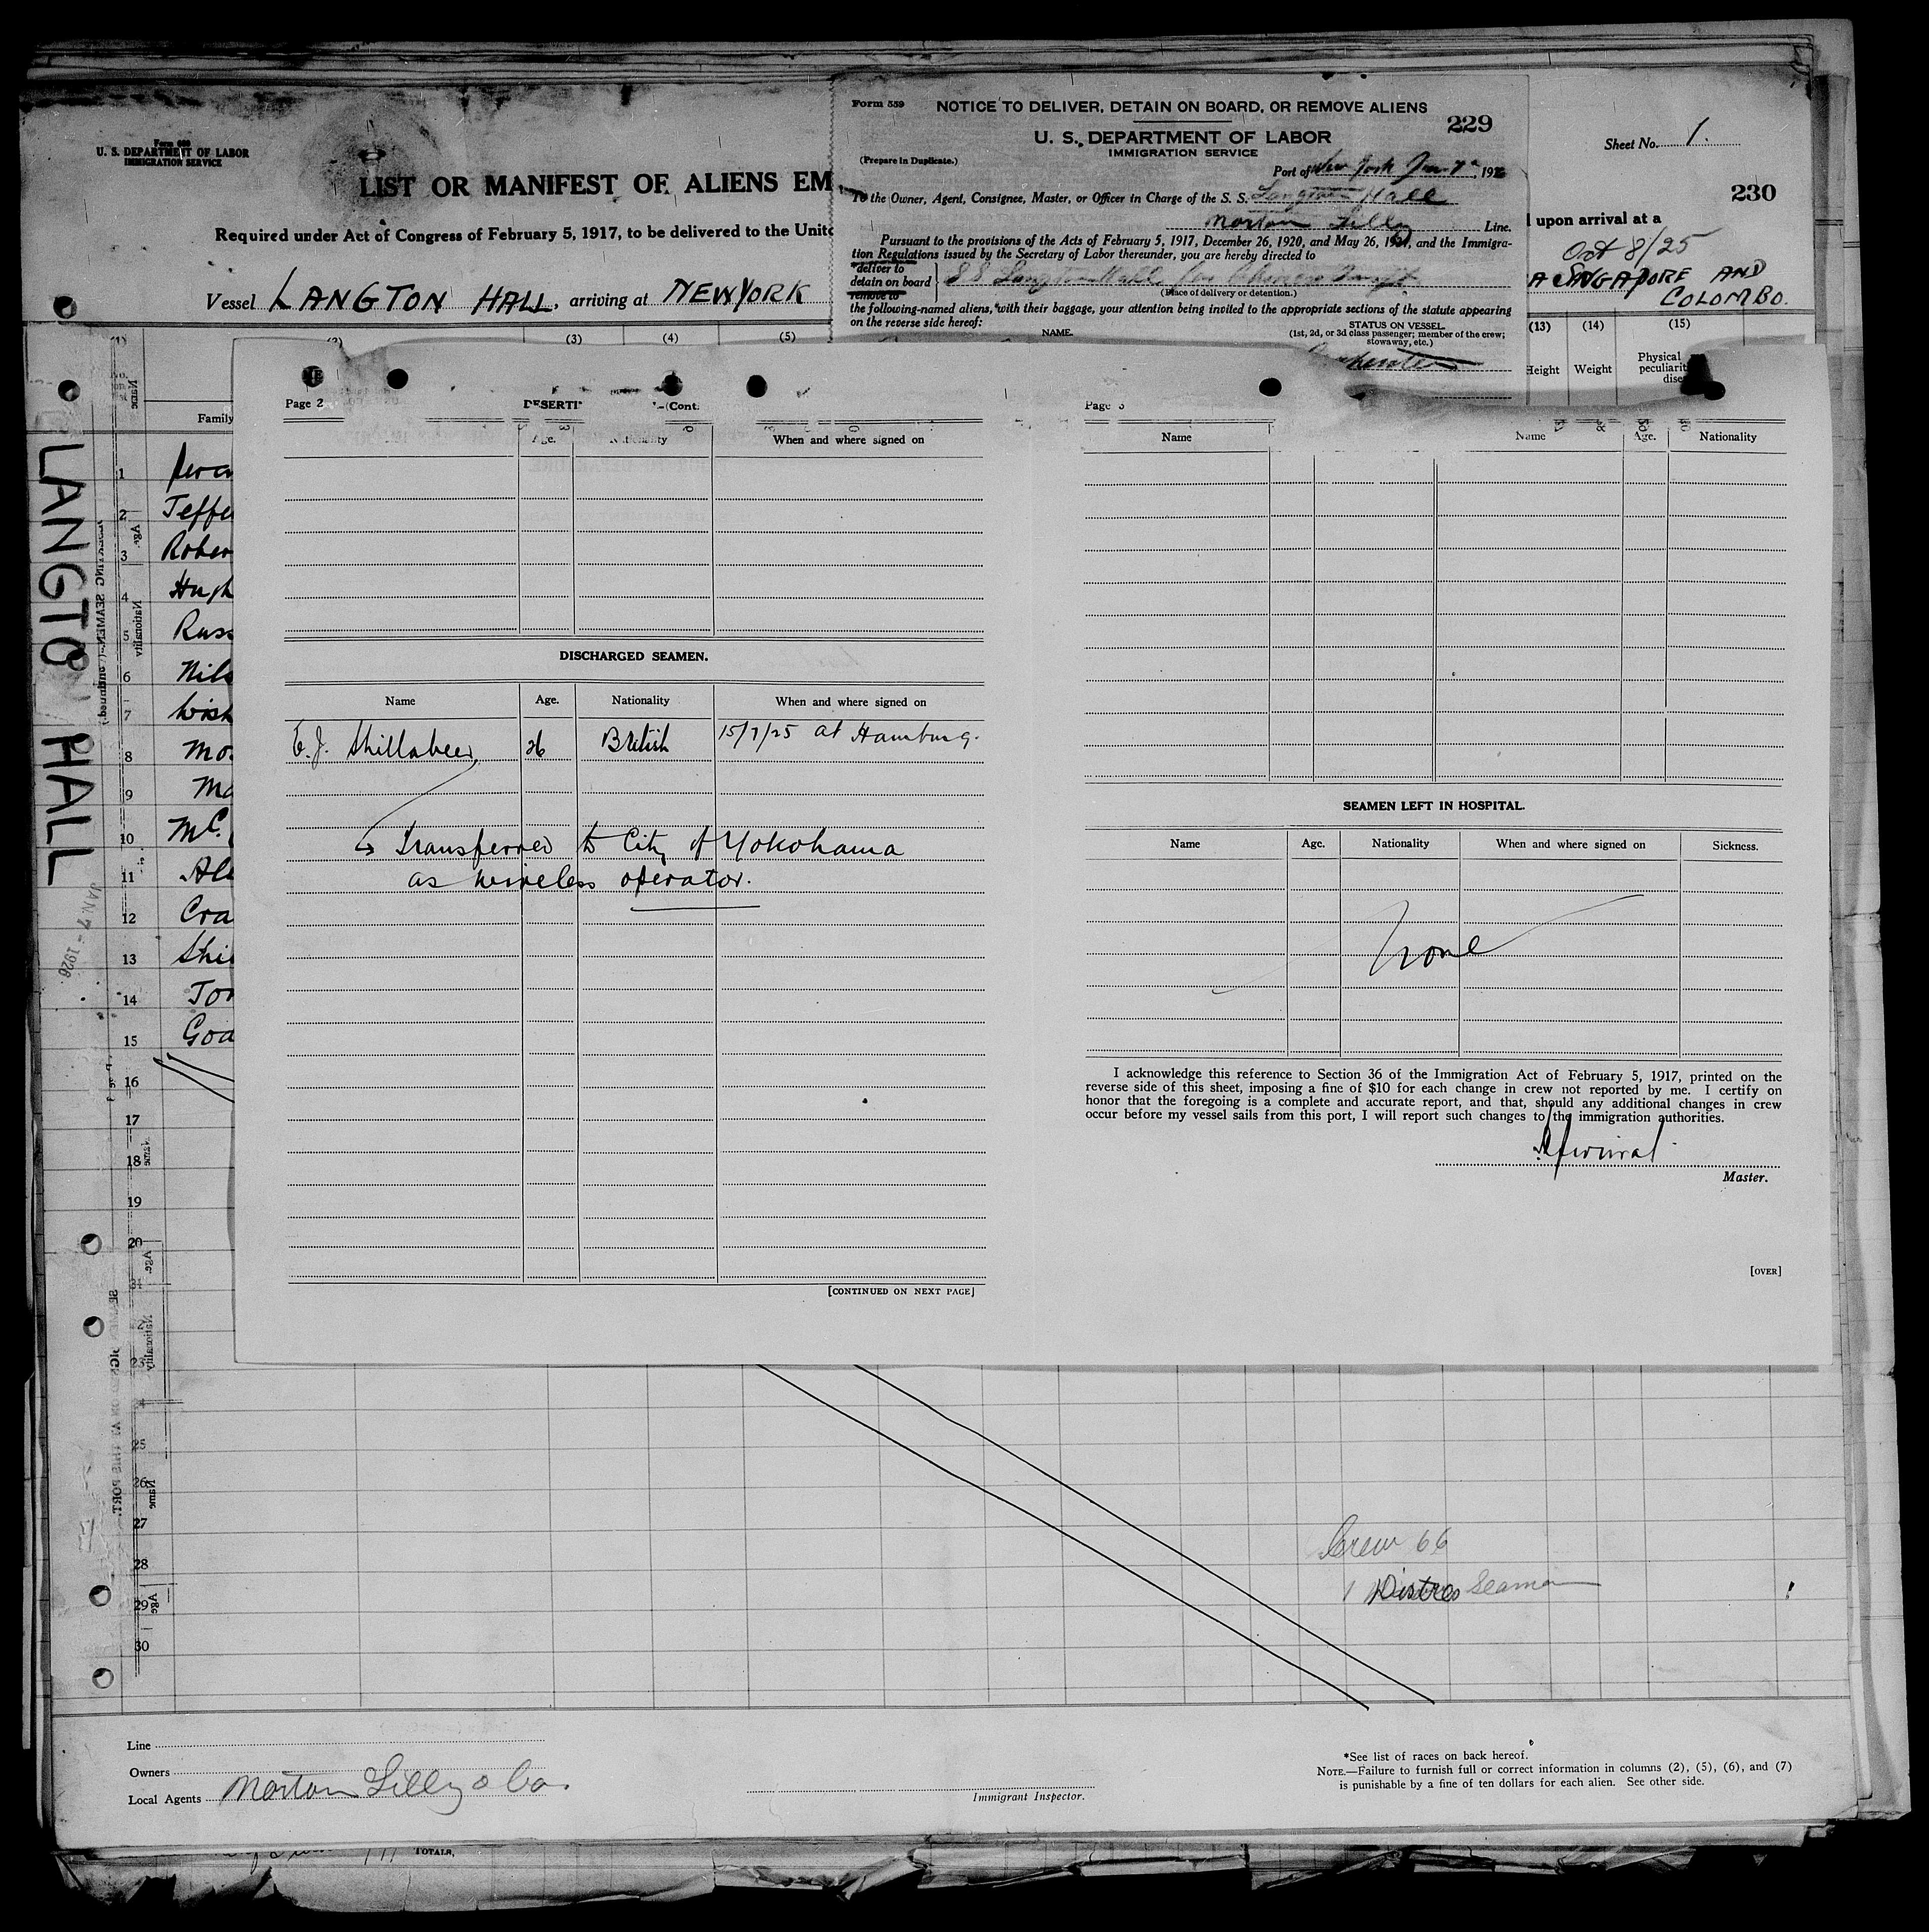 Form 689
U. S. DEPARTMENT OF LABOR
IMMIGRATION SERVICE
LIST OR MANIFEST OF ALIENS EM
Required under Act of Congress of February 5, 1917, to be delivered to the Unite
Vessel LANGTON HALL, arriving at NEW YORK
Form 559
NOTICE TO DELIVER, DETAIN ON BOARD, OR REMOVE ALIENS
229
U. S. DEPARTMENT OF LABOR
IMMIGRATION SERVICE
(Prepare in Duplicate.)
Port of New York Jan 7th, 1926
To the Owner, Agent, Consignee, Master, or Officer in Charge of the S. S. Langton Hall
Norton Lilly Line.
Pursuant to the provisions of the Acts of February 5, 1917, December 26, 1920, and May 26, 1921, and the Immigra-
tion Regulations issued by the Secretary of Labor thereunder, you are hereby directed to
*deliver to
detain on board
remove to
SS Langton Hall for Chinese
(Place of delivery or detention.)
the following-named aliens, with their baggage, your attention being invited to the appropriate sections of the statute appearing
on the reverse side hereof:
NAME.
STATUS ON VESSEL
(1st, 2d, or 3d class passenger; member of the crew;
stowaway, etc.)
Sheet No. 1.
230
l upon arrival at a
Oct 8/25
A SINGAPORE AND
COLOMBO.
(1) (2) (3) (4) (5)
(13) (14) (15)
Height Weight Physical
peculiarit
dise
Family
LANGTON HALL
JAN 7 - 1926
1
2 Jeffe
3 Rober
4 Hugh
5 Russ
6 Nils
7 Wish
8 Mo
9 Ma
10 Mc.
11 Al
12 Cra
13 Shi
14 Tor
15 Goa
16
17
18
19
20
23
25
26
27
28
29
30
Page 2
DESERTI
(Cont.
Age. Nationality When and where signed on
DISCHARGED SEAMEN.
Name Age. Nationality When and where signed on
E. J. Shillabeer, 26 British 15/7/25 at Hamburg.
Transferred to City of Yokohama
as wireless operator.
[CONTINUED ON NEXT PAGE]
Page 3
Name Name Age. Nationality
SEAMEN LEFT IN HOSPITAL.
Name Age. Nationality When and where signed on Sickness.
None
I acknowledge this reference to Section 36 of the Immigration Act of February 5, 1917, printed on the
reverse side of this sheet, imposing a fine of $10 for each change in crew not reported by me. I certify on
honor that the foregoing is a complete and accurate report, and that, should any additional changes in crew
occur before my vessel sails from this port, I will report such changes to the immigration authorities.
Master.
[OVER]
Crew 66
1 Distres Seaman
Line
Owners
Local Agents Norton Lilly & Co.
Immigrant Inspector.
*See list of races on back hereof.
NOTE.—Failure to furnish full or correct information in columns (2), (5), (6), and (7)
is punishable by a fine of ten dollars for each alien. See other side.
TOTALS,